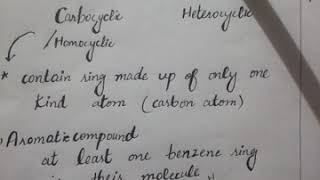 Carbocyclic Heterocyclic
/Homocyclic
* contain ring made up of only one
kind atom (carbon atom)
Aromatic compound
at least one benzene ring
their molecule